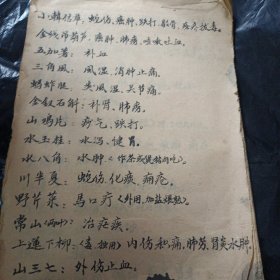 小鞋拉草、蛇伤、癌肿、跌打、驳骨、疮疥拔毒。
金线吊葫芦、癌肿、肺痨、咳嗽吐血。
五加薯：补血
三角风：风湿、消肿止痛。
蜗蚱腿、头风湿、关节痛。
金钗石斛：补肾、肺痨。
山鸡片：疳气、跌打。
水玉桂：水泻、健胃。
水八角：水肿（作茶或煲猪肉吃）。
川半夏：蛇伤、化痰、痈疮。
野芹菜：马口疔（外用，加盐煨敷）
常山（两钱）：治疟疾。
上莲下柳：（独用）内伤积痛、肺痨、胃炎水肿。
山三七：外伤止血。